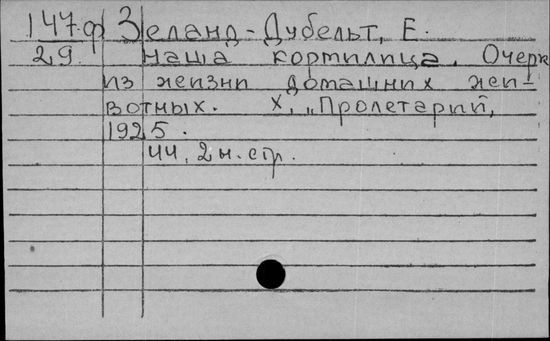 147.ф Зеланд-Дубельт, Е.
29. Наша кормилица. Очерк
из жизни домашних жи-
вотных. Х, „Пролетарий,
1925.
44, 2 н. стр.